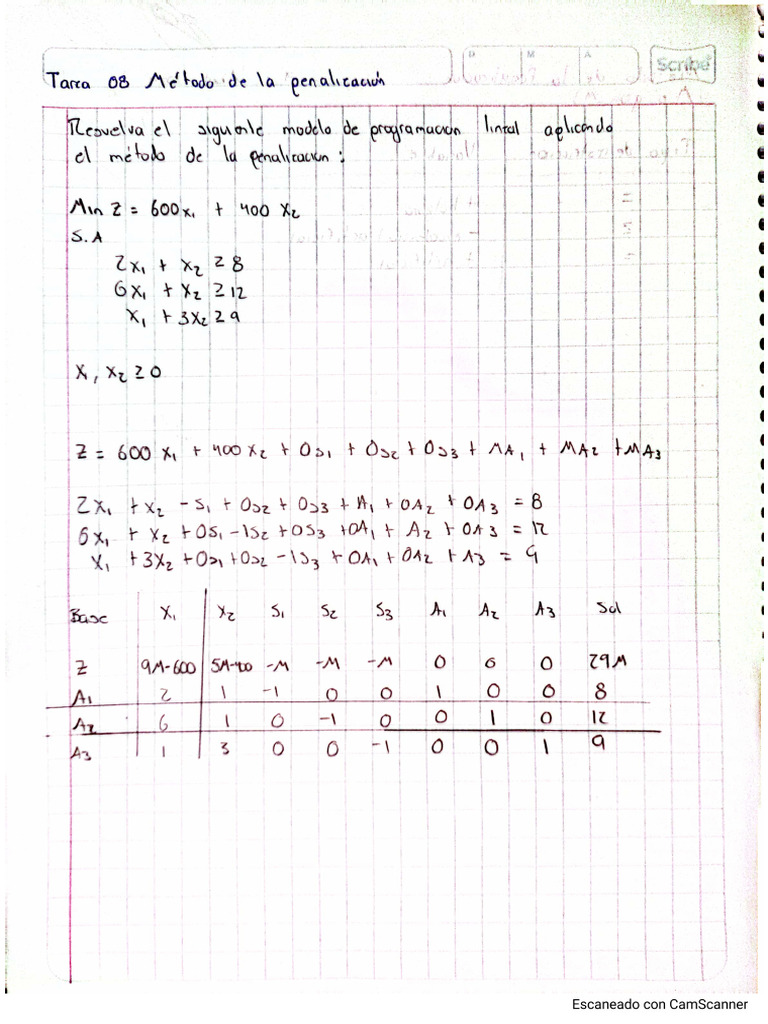 D M A
Scribe
Tarea 08 Método de la penalización
Resuelva el siguente modelo de programación lineal aplicando
el método de la penalización:
Min Z = 600x₁ + 400 X₂
S.A
2x₁ + x₂ ≥ 8
6x₁ + x₂ ≥ 12
x₁ + 3x₂ ≥ 9
X₁, X₂ ≥ 0
Z = 600 X₁ + 400 X₂ + 0S₁ + 0S₂ + 0S₃ + MA₁ + MA₂ + MA₃
2x₁ + x₂ - S₁ + 0S₂ + 0S₃ + A₁ + 0A₂ + 0A₃ = 8
6x₁ + x₂ + 0S₁ - 1S₂ + 0S₃ + 0A₁ + A₂ + 0A₃ = 12
x₁ + 3X₂ + 0S₁ + 0S₂ - 1S₃ + 0A₁ + 0A₂ + A₃ = 9
Base X₁ X₂ S₁ S₂ S₃ A₁ A₂ A₃ Sol
Z 9M-600 5M-400 -M -M -M 0 0 0 29M
A₁ 2 1 -1 0 0 1 0 0 8
A₂ 6 1 0 -1 0 0 1 0 12
A₃ 1 3 0 0 -1 0 0 1 9
Escaneado con CamScanner